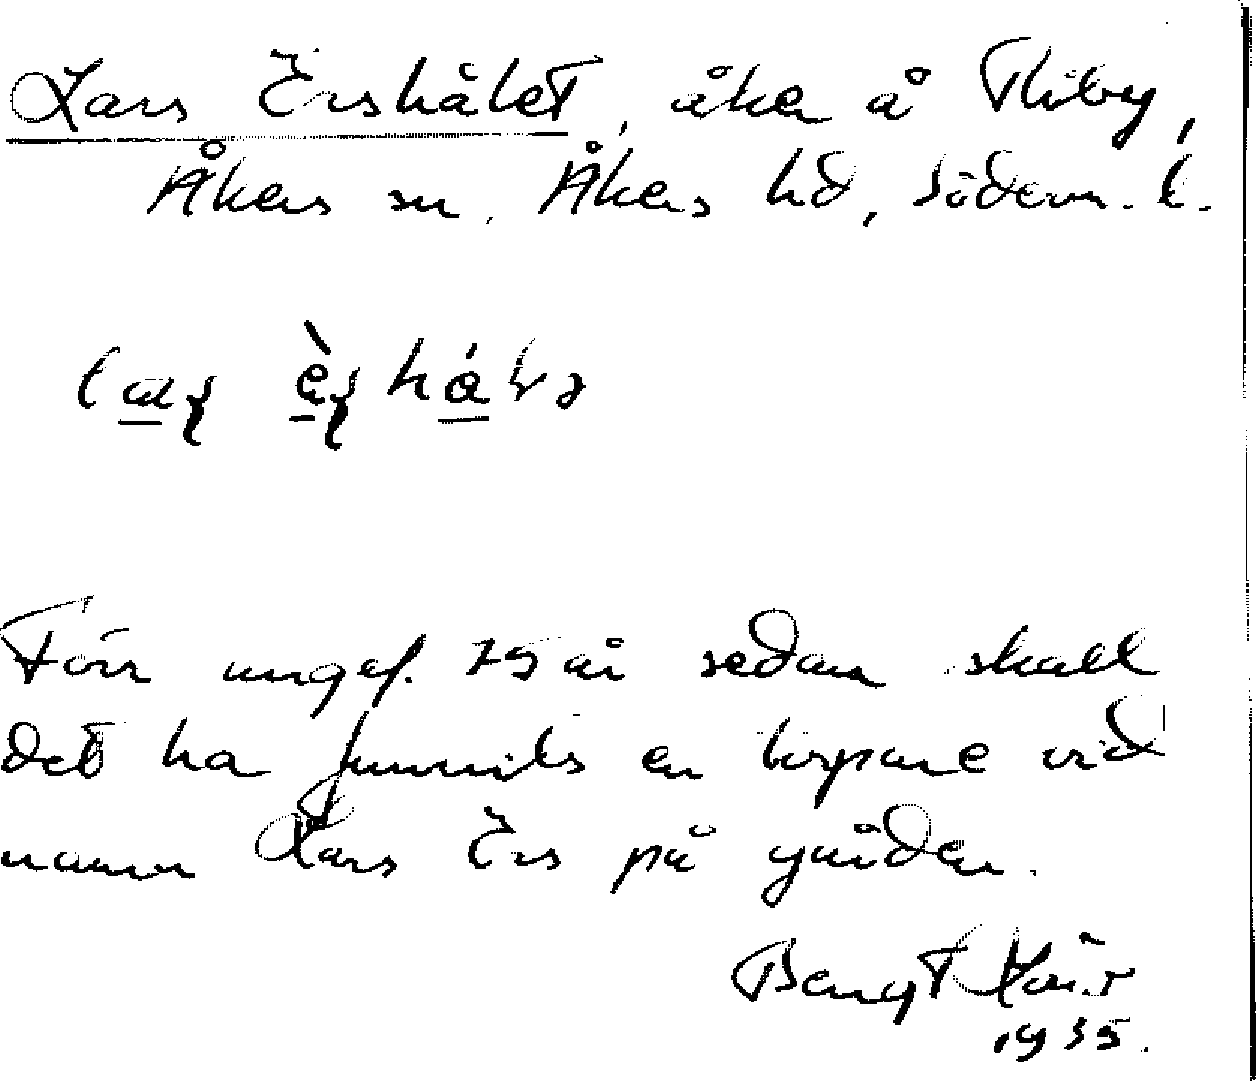 Lars Ershålet, åker å Kliby,
Åkers sn. Åkers hd, Söderm. l.
Förr ungef. 75 år sedan skall
det ha funnits en torpare vid
namn Lars Ers på gården.
Bengt
1935.